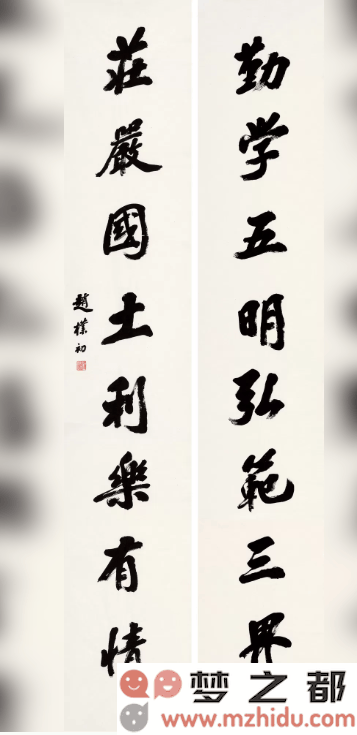 勤学五明弘範三界
莊嚴國土利樂有情
趙樸初
梦之都
www.mzhidu.com